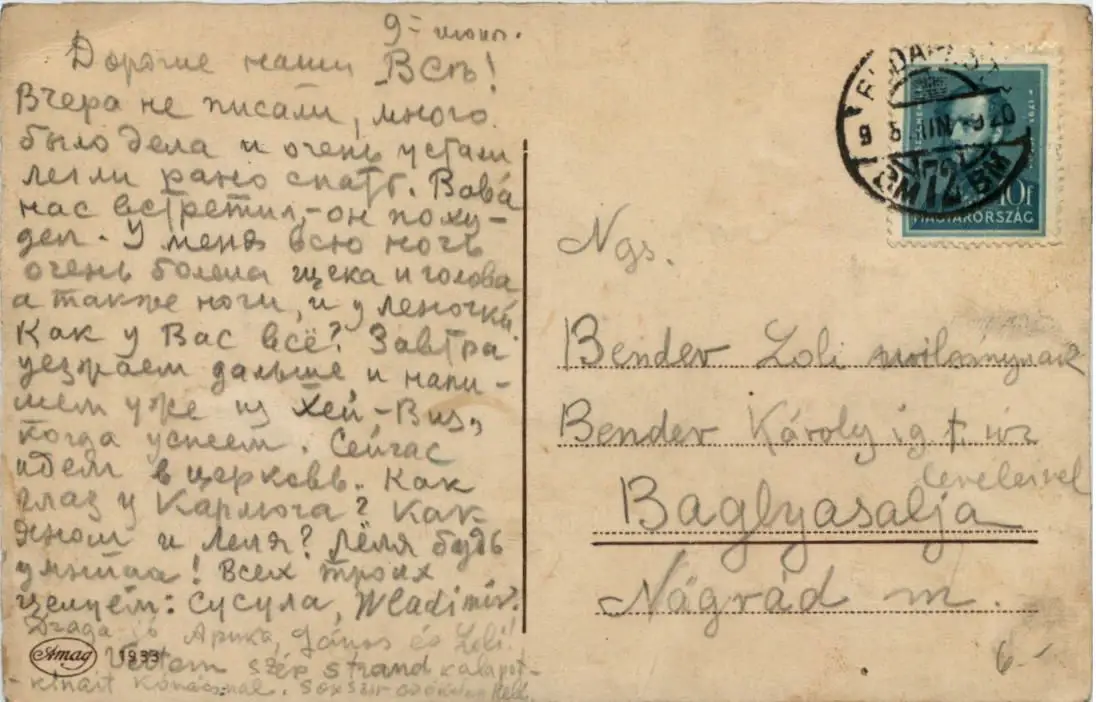 9= июня.
Дорогие наши Всѣ!
Вчера не писали, много
было дела и очень устали
легли рано спать. Вова
нас встретил,-он поху-
дел. У меня всю ночь
очень болела щека и голова
а также ноги, и у Леночки.
Как у Вас всё? Завтра
уезжаем дальше и напи-
шем уже из Хей-Виз,
когда успеем. Сейчас
идем в церковь. Как
глаз у Карлюча? Как
Яном и Леля? Лёля будь
умница! Всех троих
целуем: Сусула, Wladimir.
Draga jó Apuka, János és Loli!
Vettem szép strand kalapot
Amag 1933
BUDAPEST
72
10f
MAGYARORSZÁG
Ngs.
Bender Loli
Bender Károly ig. t. úr
leveleivel
Baglyasalja
Nógrád m.
6.-